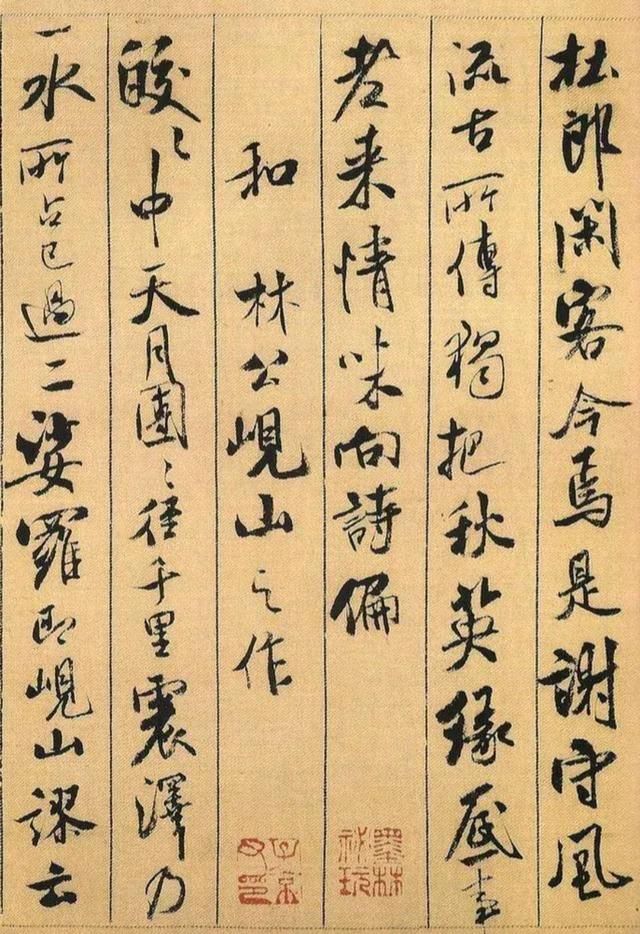 杜郎閑客今焉是謝守風
流古所傳獨把秋英緣底事
老来情味向詩偏
墨林
祕玩
和林公峴山之作
子京
父印
皎〻中天月團〻徑千里震澤乃
一水所占已過二娑羅即峴山謬云